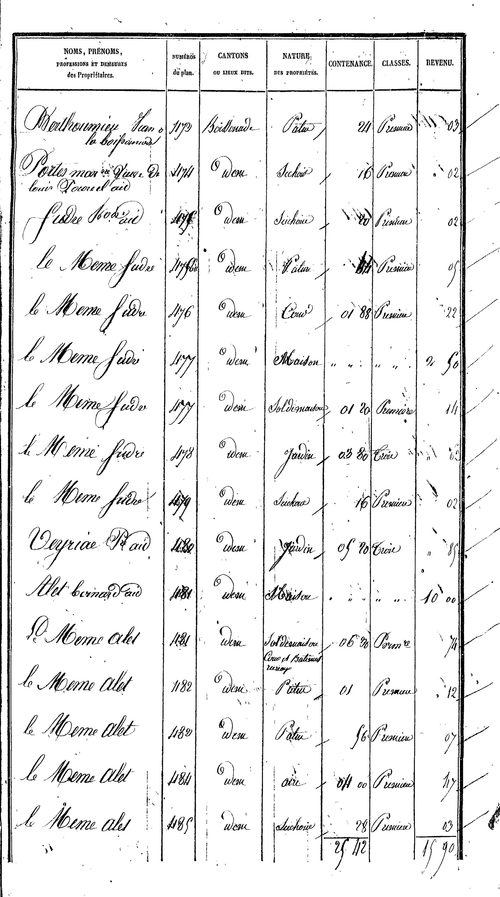 NOMS, PRÉNOMS, PROFESSIONS ET DEMEURES des Propriétaires. NUMÉROS du plan. CANTONS OU LIEUX DITS. NATURE DES PROPRIÉTÉS. CONTENANCE. CLASSES. REVENU.
Berthoumieu Jean 473 Patur 24 Premiere 03
474 idem Sechoir 16 Premiere 02
Sudre idem Sechoir 20 Premiere 02
le Meme Sudre idem Patur 44 Premiere 05
le Meme Sudre 476 idem Cour 01 88 Premiere 22
le Meme Sudre 477 idem Maison " " " " 2 50
le Meme Sudre 477 idem Sol de maison 01 20 Premiere 14
le Meme Sudre 478 idem Jardin 03 80 Trois
le Meme Sudre 479 idem Sechoir 16 Premiere 02
Veyriac 480 idem Jardin 05 20 Trois 85
Alet bernard 481 idem Maison " " " " 10 00
Le Meme alet 481 idem Sol de maison Cour et Batiment ruraux 06 20 Premre 74
le Meme alet idem Patur 01 Premiere 12
le Meme alet idem Patur 56 Premiere 07
le Meme alet 484 idem aire 04 00 Premiere 47
le Meme alet 485 idem Sechoir 28 Premiere 03
25 42 15 90